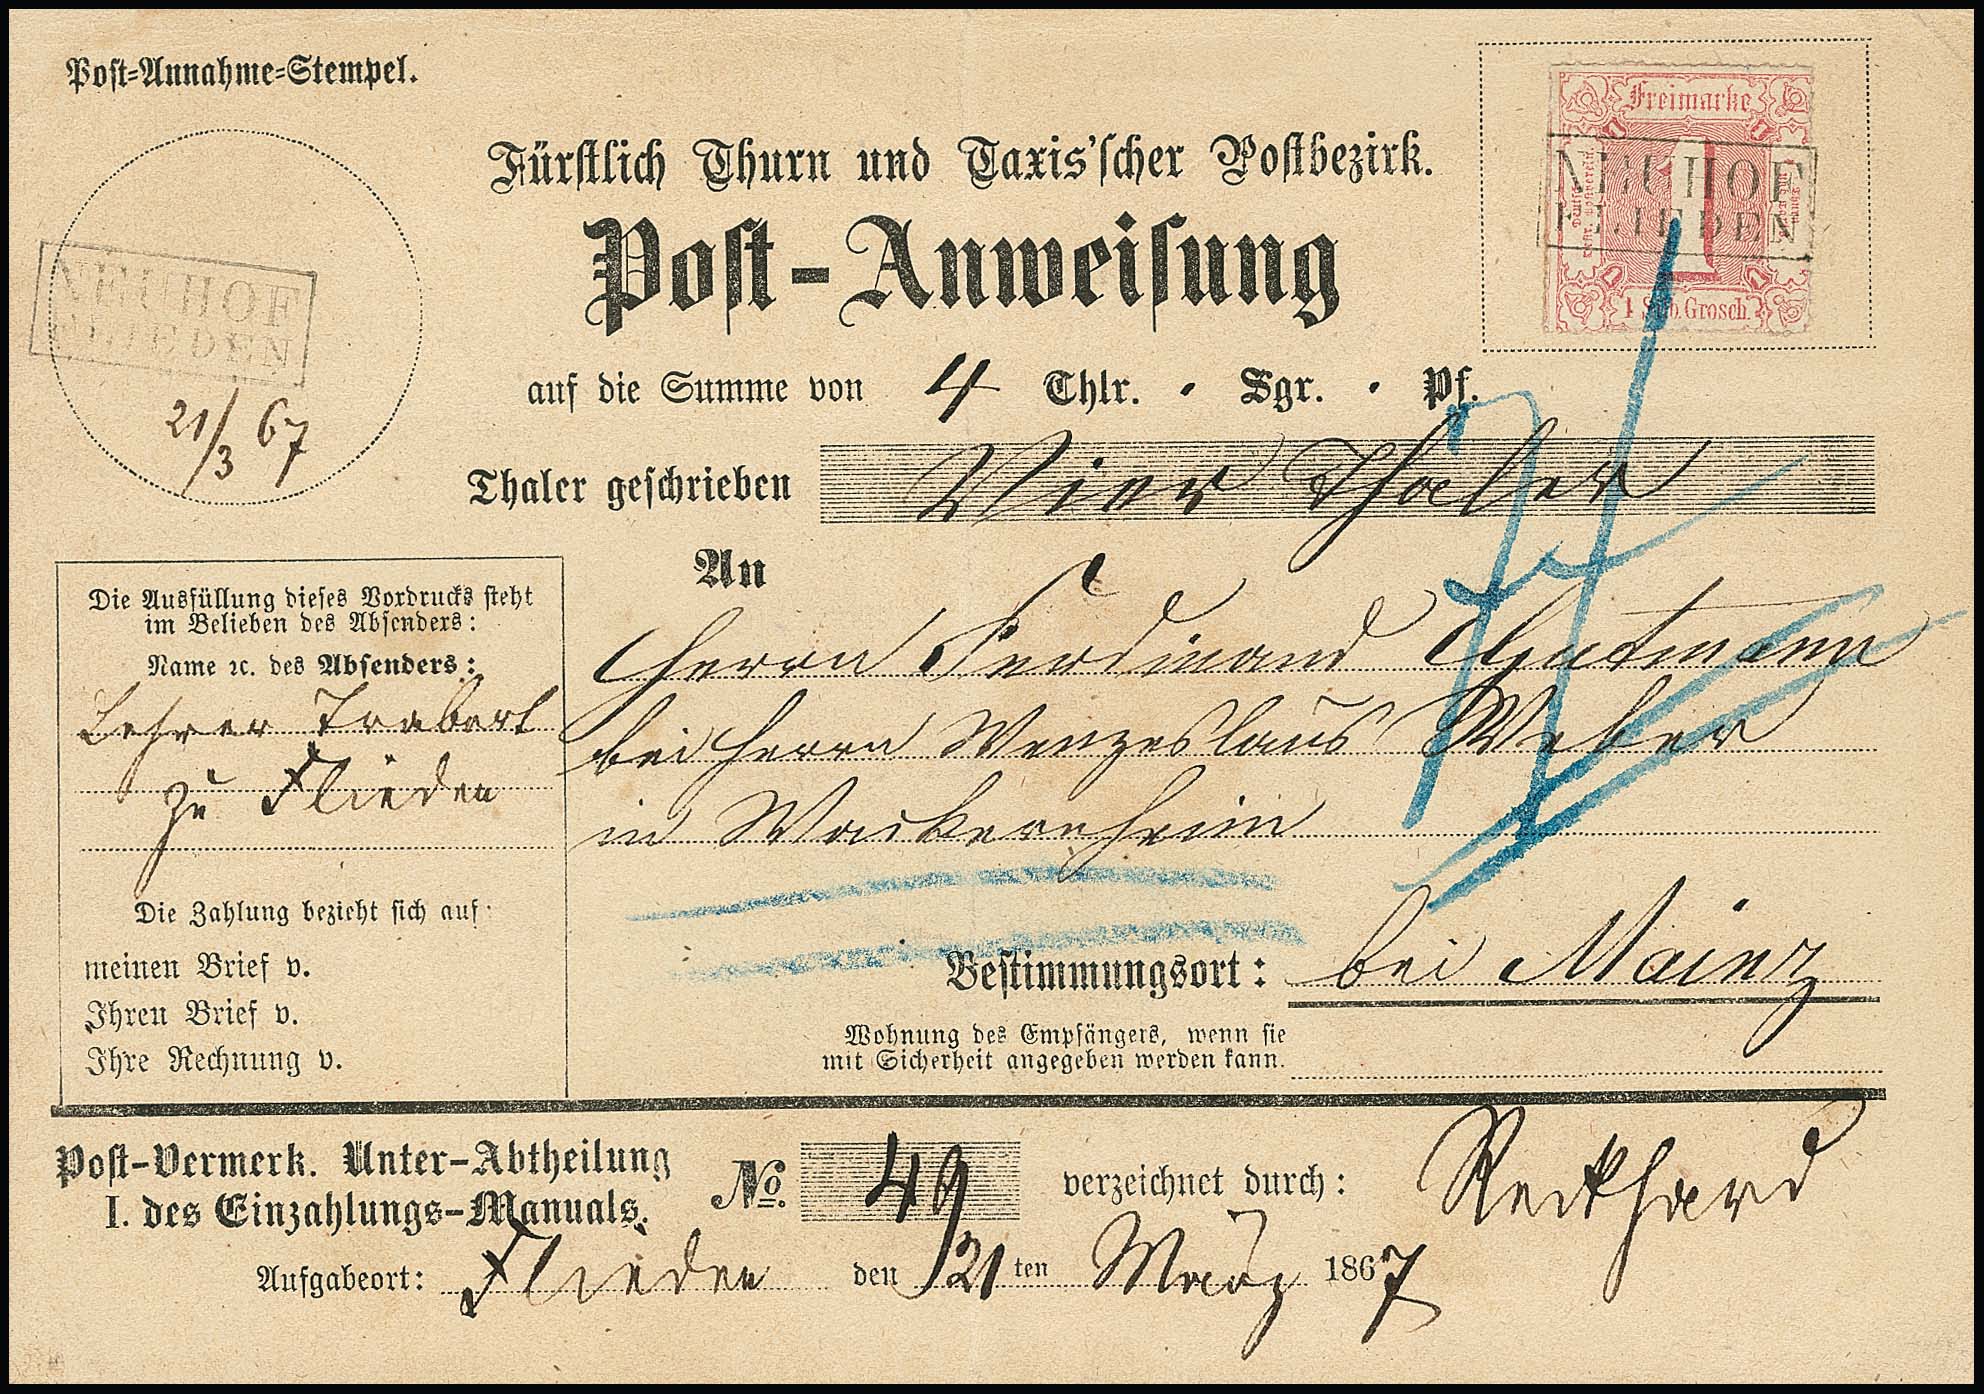 Post-Annahme-Stempel.
Freimarke
NEUHOF
FLIEDEN
1 Silb. Grosch.
Fürstlich Thurn und Taxis'scher Postbezirk.
Post-Anweisung
NEUHOF
FLIEDEN
21/3 67
auf die Summe von 4 Thlr. · Sgr. · Pf.
Thaler geschrieben Vier Thaler
An
Herrn Ferdinand Gutmann
bei Herrn Wenzeslaus Weber
in Wackernheim
Bestimmungsort: bei Mainz
Wohnung des Empfängers, wenn sie
mit Sicherheit angegeben werden kann.
Die Ausfüllung dieses Vordrucks steht
im Belieben des Absenders:
Name ꝛc. des Absenders:
Lehrer Trabert
zu Flieden
Die Zahlung bezieht sich auf:
meinen Brief v.
Ihren Brief v.
Ihre Rechnung v.
Post-Vermerk. Unter-Abtheilung
I. des Einzahlungs-Manuals.
No. 49 verzeichnet durch: Reckhard
Aufgabeort: Flieden den 21 ten März 1867